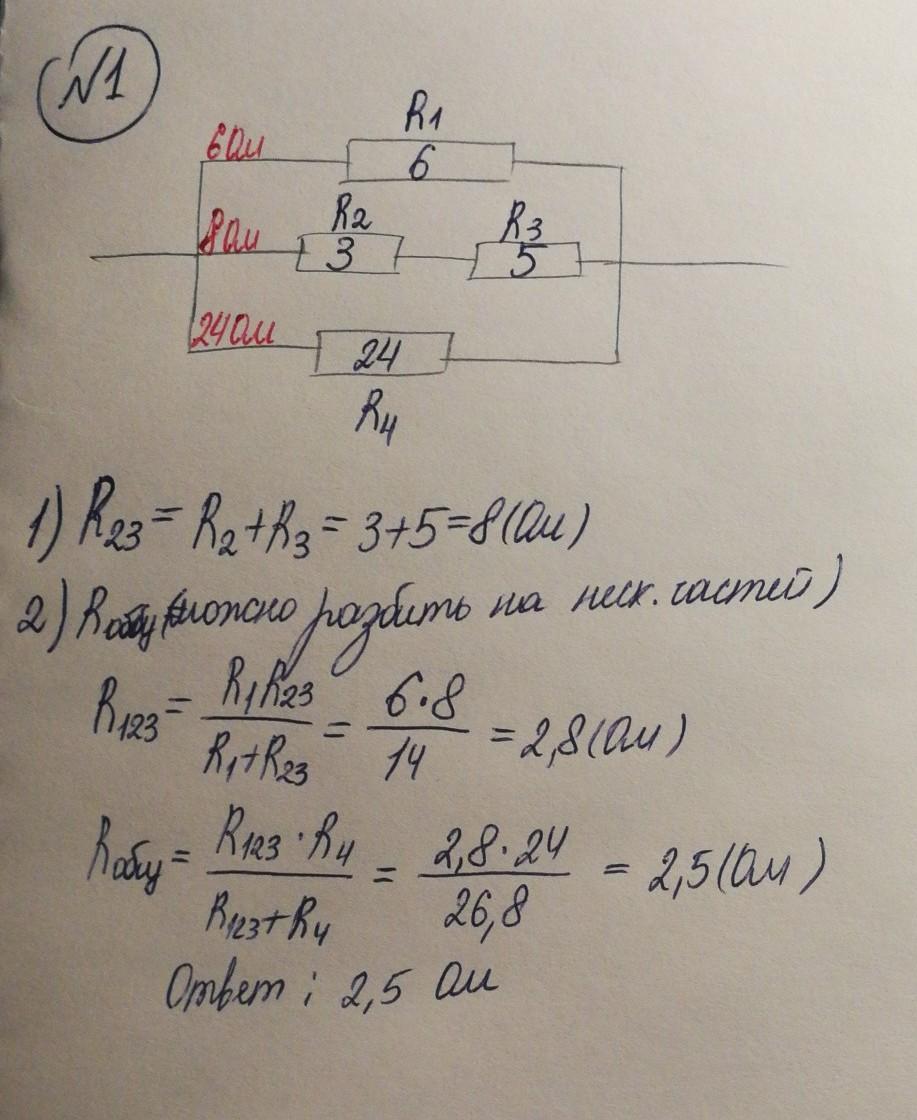 №1
R1
6 Ом
6
R2 R3
8 Ом
3 5
24 Ом
24
R4
1) R23 = R2 + R3 = 3+5=8(Ом)
2) Rобщ (можно разбить на неск. частей)
R123 = R1R23 / R1+R23 = 6·8 / 14 = 2,8(Ом)
Rобщ = R123·R4 / R123+R4 = 2,8·24 / 26,8 = 2,5(Ом)
Ответ: 2,5 Ом